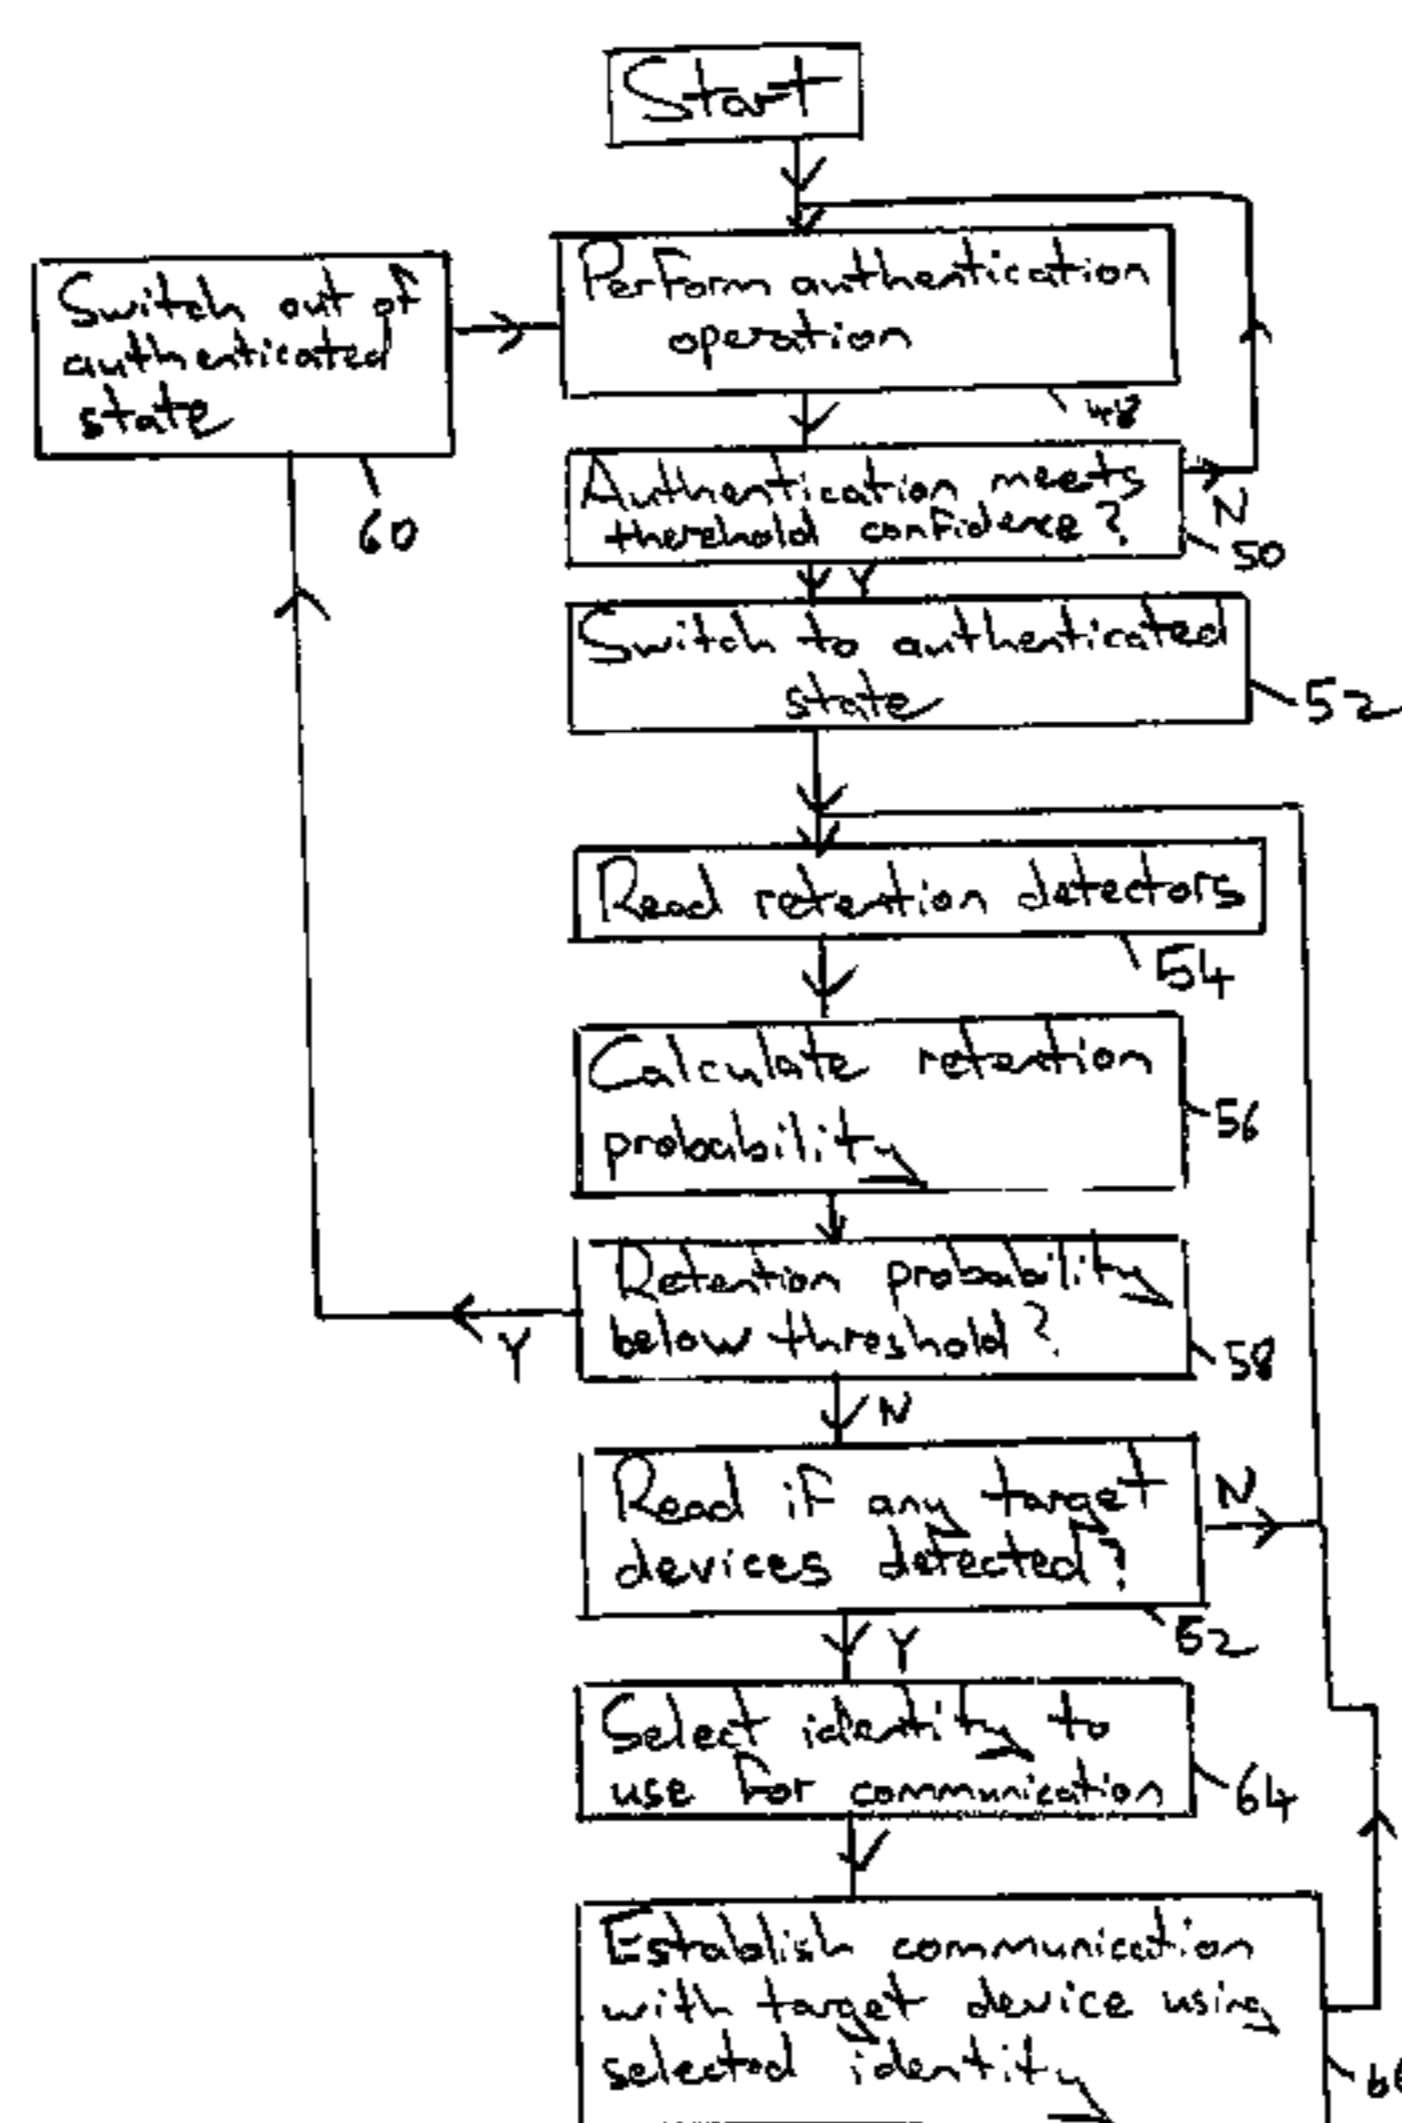 Start
Perform authentication
operation
48
Switch out of
authenticated
state
60
Authentication meets
therehold confidence?
N
50
Y
Switch to authenticated
state
52
Read retention detectors
54
Calculate retention
probability
56
Retention probability
below threshold?
Y
58
N
Read if any target
devices detected?
N
52
Y
Select identity to
use for communication
64
Establish communication
with target device using
selected identity